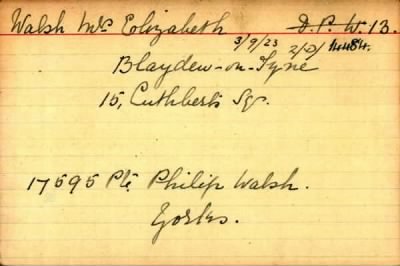 Walsh Mrs Elizabeth D.P.W. 13.
3/9/23
Blayden-on-Tyne
15, Cuthberts Sq.
17595 Pte Philip Walsh.
Yorks.